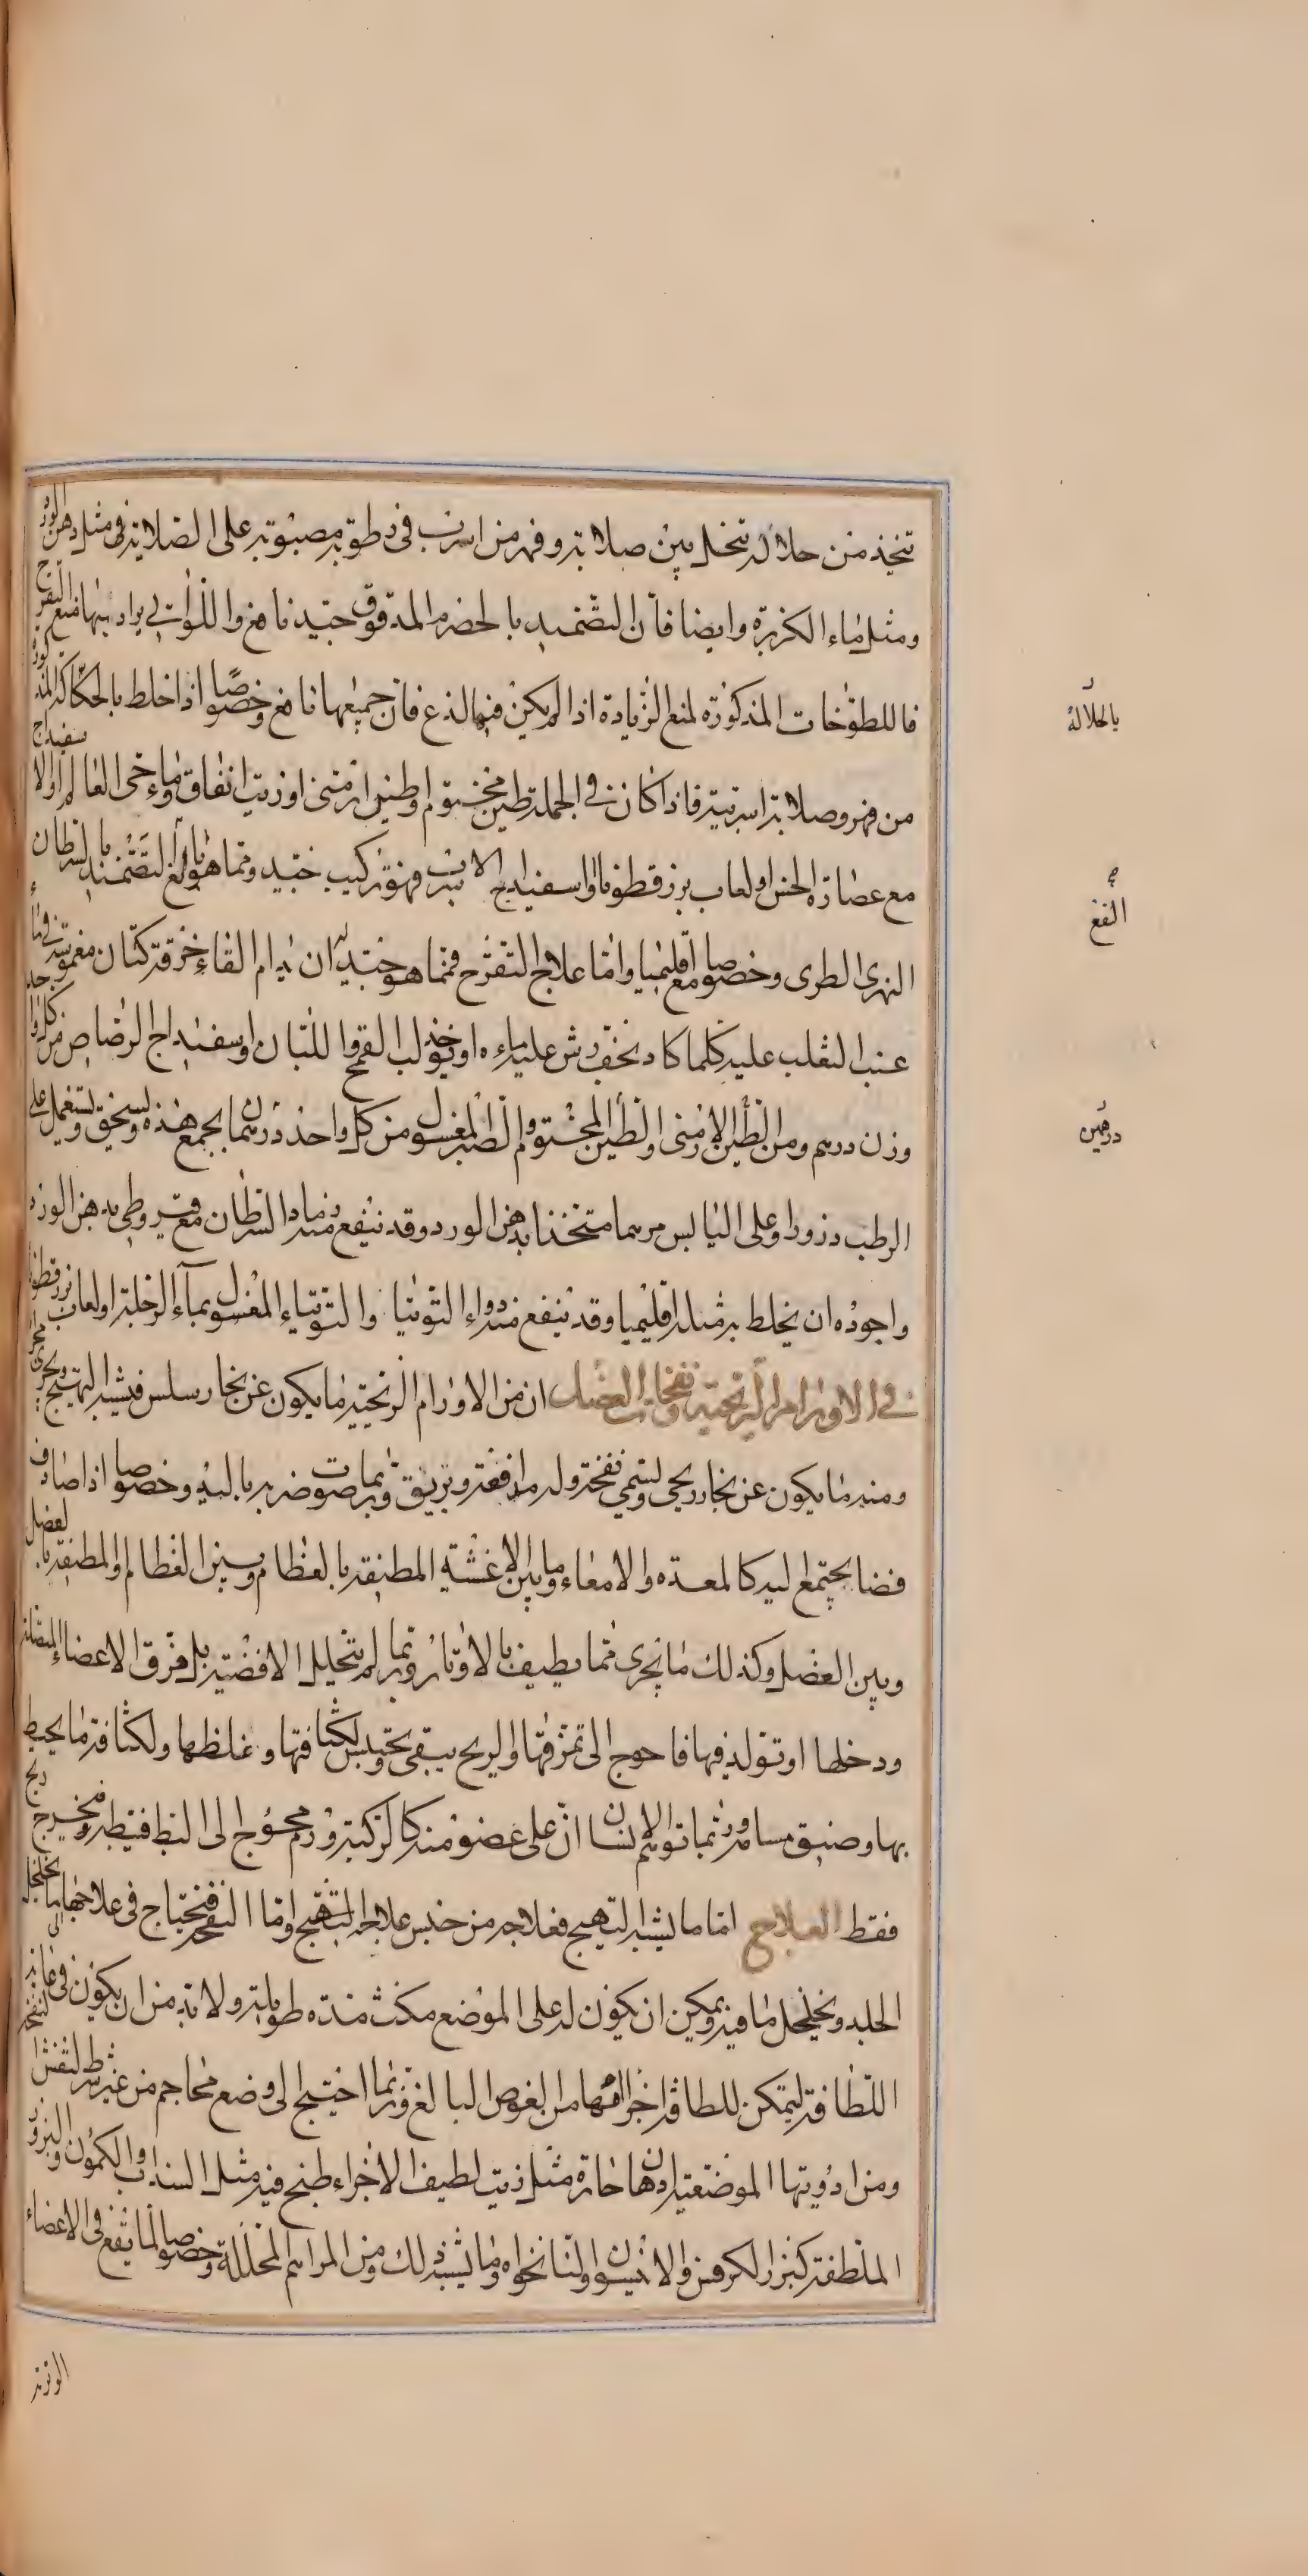 تتخذ من حلالة تنحل بين صلابة وفهر من اسرب في رطوبة مصبوبة على الصلابة في مثل دهن الورد
ومثل ماء الكزبرة وايضا فان التضميد بالحضرم المدقوق جيد نافع واللواتي يراد بها منع التقرح
فاللطوخات المذكورة لمنع الزيادة اذا لم يكن فيها لذع فان جميعها نافع وخصوصا اذا خلط بالحكاكة المذكورة
من فهر وصلابة اسربية فاذا كان في الجملة طين مختوم او طين ارمني او زيت انفاق وماء حي العالم او الاسفيداج
مع عصارة الخس او لعاب بزرقطونا او اسفيداج الاسرب فهو تركيب جيد ومما هو بالغ التضميد بالسرطان
النهري الطري وخصوصا مع اقليميا واما علاج التقرح فمما هو جيد له ان يدام القاء خرقة كتان مغموسة في ماء
عنب الثعلب عليه كلما كاد يجف رش عليه ماءه او يؤخذ لب القمح واللبان واسفيداج الرصاص من كل واحد
وزن درهم ومن الطين الارمني والطين المختوم والصبر المغسول من كل واحد درهمان يجمع هذه ويسحق ويستعمل على
الرطب ذرورا وعلى اليابس مرهما متخذا بدهن الورد وقد ينفع منه رماد السرطان مع قيروطي بدهن الورد
واجوده ان يخلط به مثله اقليميا وقد ينفع منه دواء التوتيا والتوتياء المغسول بماء الرجلة او لعاب بزرقطونا
في الاورام الريحية ونفخات العضل ان من الاورام الريحية ما يكون عن بخار سلس فيشبه التهيج ويجري مجراه
ومنه ما يكون عن بخار ريحي ويسمى نفخة وله مدافعة وبريق وربما صوت ضربه باليد وخصوصا اذا صادف
فضا يجتمع اليه كالمعدة والامعاء وما بين الاغشية المطيفة بالعظام وبين العظام والمطيفة بالعضل
وبين العضل وكذلك ما يجري مما يطيف بالاوتار وربما لم يتخلل الافضية بل فرق الاعضاء المتصلة
ودخلها او تولد فيها فاحوج الى تمزقها والريح يبقى ويحتبس لكثافتها وغلظها ولكثافة ما يحيط
بها وضيق مسامه وربما توهم الانسان ان على عضو منه كالركبة ورم محوج الى البط فيبطه ويخرج ريح
فقط العلاج اما ما يشبه التهيج فعلاجه من جنس علاج التهيج واما النفخة فيحتاج في علاجها الى ما يخلخل
الجلد ويخلخل ما فيه ويمكن ان يكون له على الموضع مكث مدة طويلة ولا بد من ان يكون في غاية
اللطافة ليتمكن للطافة اجزائها من الغوص البالغ وربما احتيج الى وضع محاجم من غير شرط لتفش النفخة
ومن ادويتها الموضعية ادهان حارة مثل زيت لطيف الاجزاء طبخ فيه مثل السداب والكمون والبزور
الملطفة كبزر الكرفس والانيسون والنانخواه وما يشبه ذلك ومن المراهم المحللة وخصوصا لما يقع في الاعضاء
بالحلالة
النفع
درهمين
الوترية